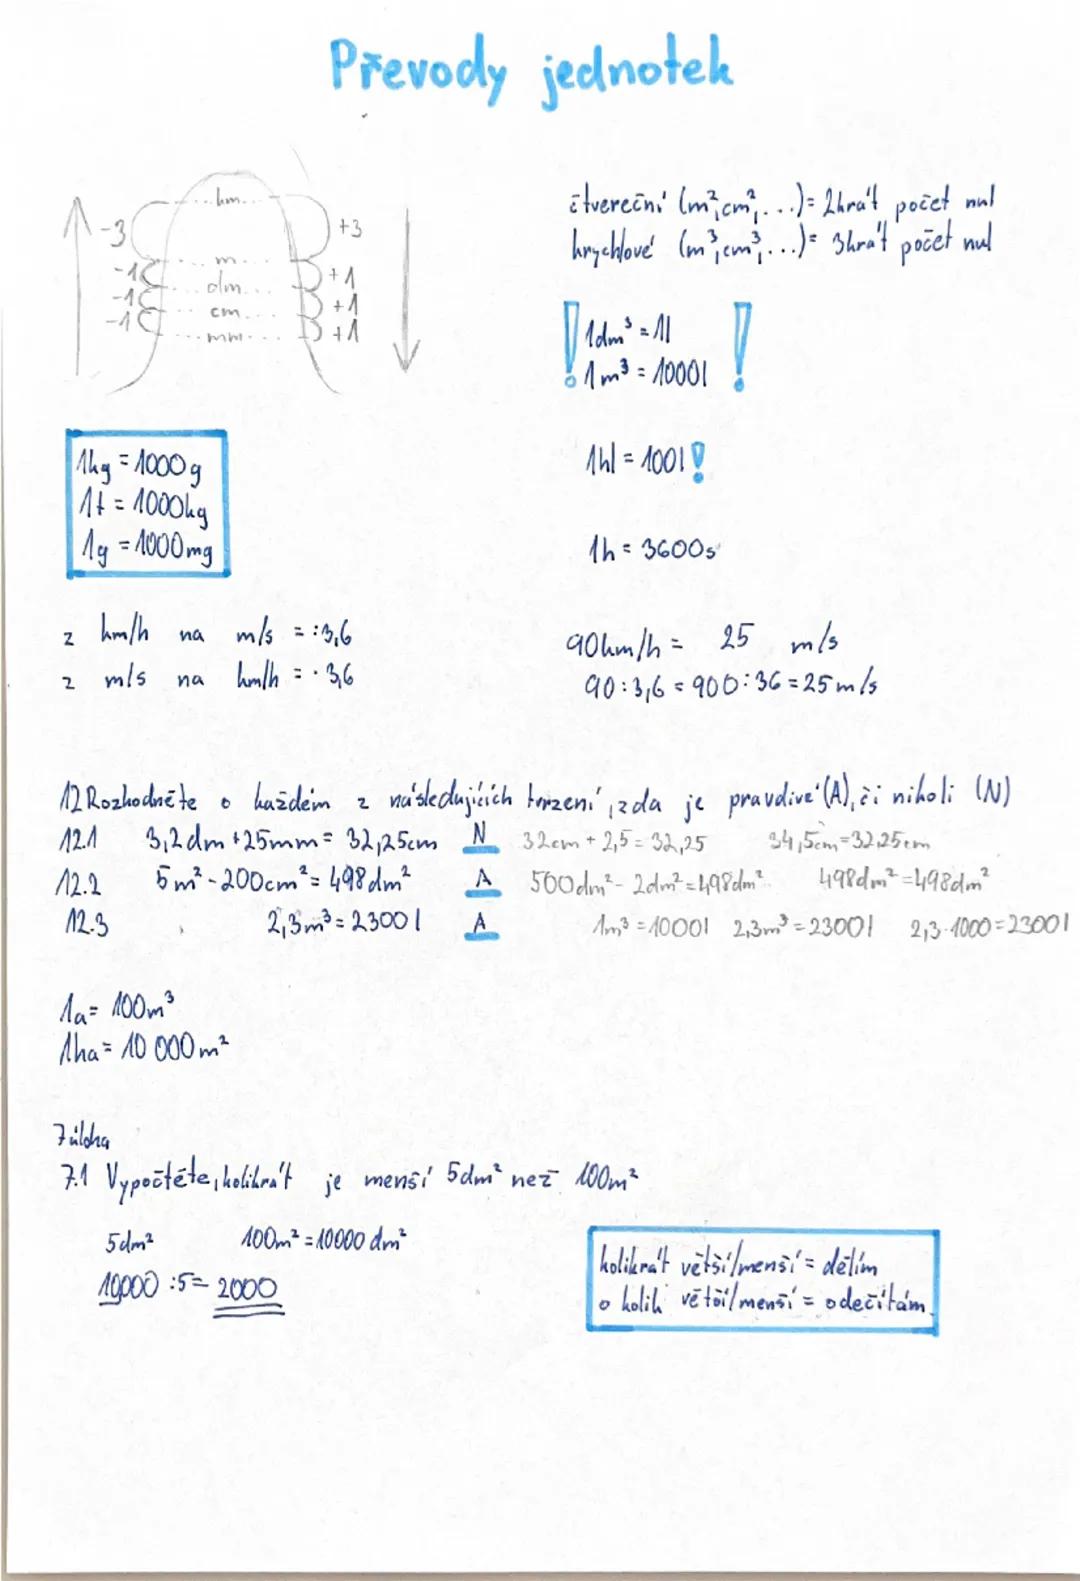 Převody jednotek
km
-3 +3
m
-1 +1
dm
-1 +1
cm
-1 +1
mm
čtvereční (m², cm², ...) = 2krát počet nul
krychlové (m³, cm³, ...) = 3krát počet nul
! 1dm³ = 1l !
1m³ = 1000l
1kg = 1000g
1t = 1000kg
1g = 1000mg
1hl = 100l !
1h = 3600s
z km/h na m/s = :3,6
z m/s na km/h = · 3,6
90km/h = 25 m/s
90:3,6 = 900:36 = 25m/s
12 Rozhodněte o každém z následujících tvrzení, zda je pravdivé (A), či nikoli (N)
12.1 3,2dm + 25mm = 32,25cm N 32cm + 2,5 = 32,25 34,5cm = 32,25cm
12.2 5m² - 200cm² = 498dm² A 500dm² - 2dm² = 498dm² 498dm² = 498dm²
12.3 2,3m³ = 2300l A 1m³ = 1000l 2,3m³ = 2300l 2,3·1000 = 2300l
1a = 100m³
1ha = 10 000m²
7 úloha
7.1 Vypočtěte, kolikrát je menší 5dm² než 100m²
5dm² 100m² = 10000dm²
10000 :5 = 2000
kolikrát větší/menší = dělím
o kolik větší/menší = odečítám